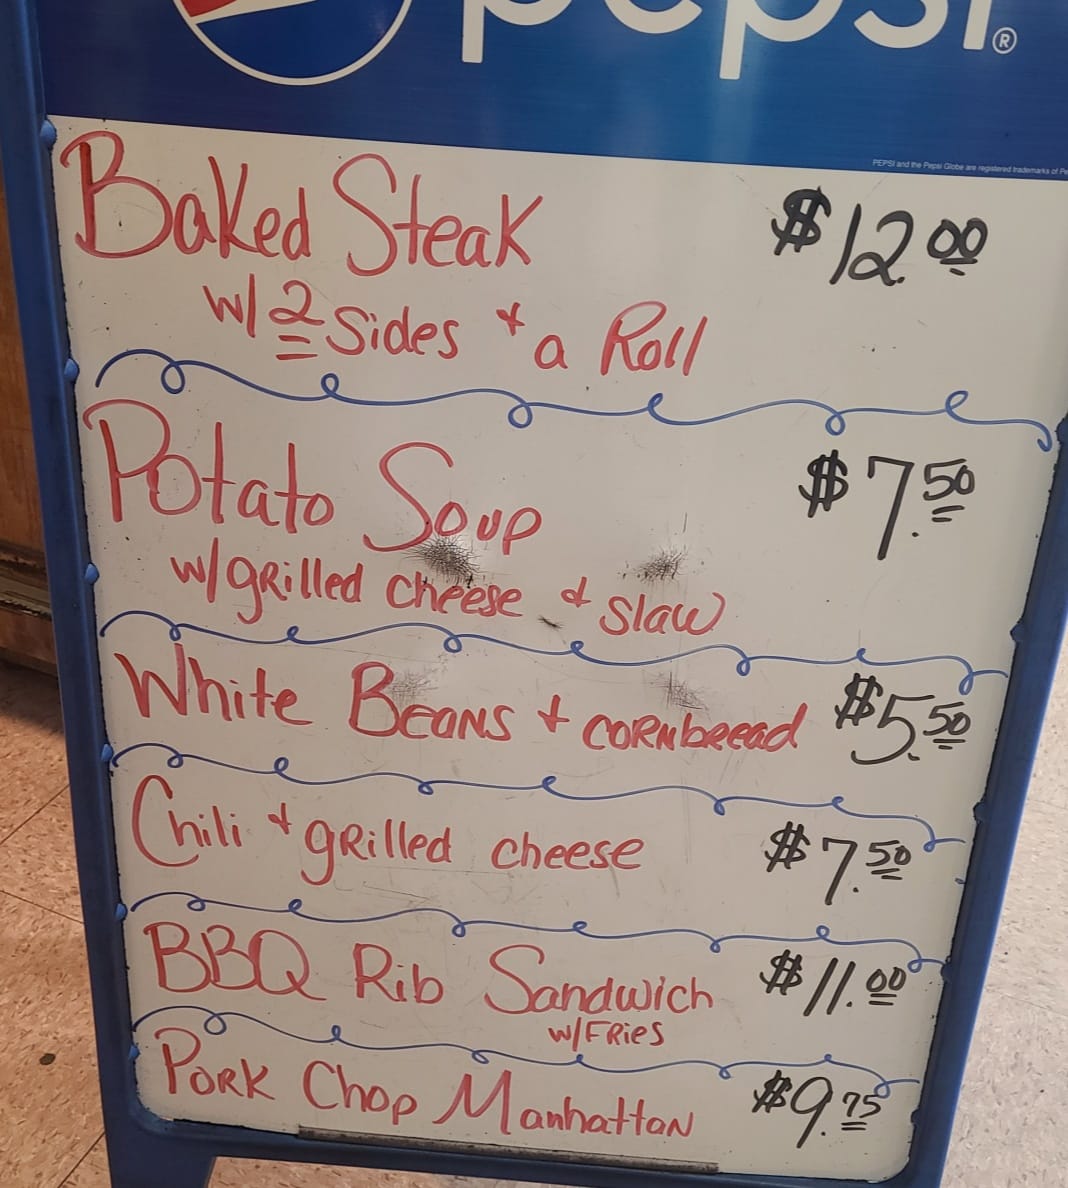 pepsi®
PEPSI and the Pepsi Globe are registered trademarks of
Baked Steak $12.00
w/ 2 Sides & a Roll
Potato Soup $7.50
w/ grilled cheese & slaw
White Beans & cornbread $5.50
Chili & grilled cheese $7.50
BBQ Rib Sandwich $11.00
w/ Fries
Pork Chop Manhattan $9.75